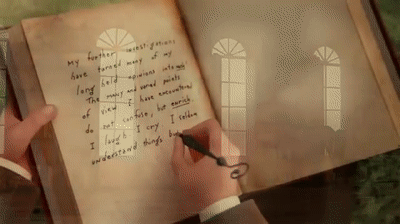 My further investigations
have turned many of my
long held opinions into
The many and varied points
of view I have encountered
do not confuse, but enrich
I laugh I cry I seldom
understand things but